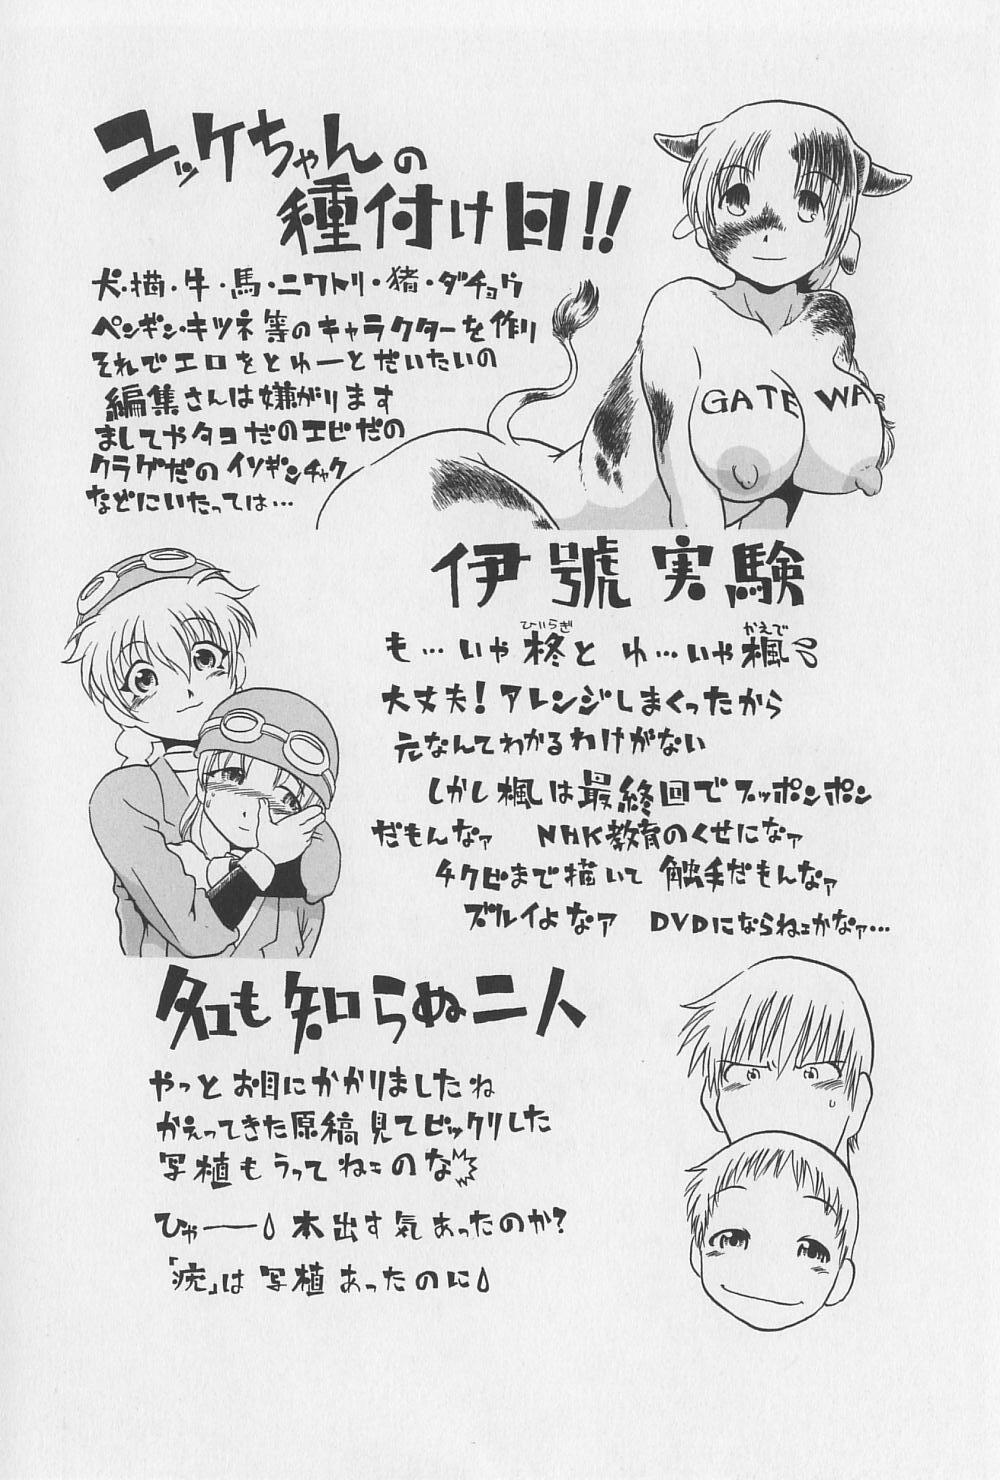 ユッケちゃんの
種付け日!!
犬・猫・牛・馬・ニワトリ・猪・ダチョウ
ペンギン・キツネ等のキャラクターを作り
それでエロをとゆーとだいたいの
編集さんは嫌がります
ましてやタコだのエビだの
クラゲだのイソギンチャク
などにいたっては…
GATE WAY
伊號実験
も…いや柊とゆ…いや楓
ひいらぎ
かえで
大丈夫!アレンジしまくったから
元なんてわかるわけがない
しかし楓は最終回でスッポンポン
だもんなァ NHK教育のくせになァ
チクビまで描いて 触手だもんなァ
ズルイよなァ DVDにならねェかなァ…
名も知らぬ二人
やっとお目にかかりましたね
かえってきた原稿見てビックリした
写植もうってねェのな
ひゃー 本出す気あったのか?
「疣」は写植あったのに